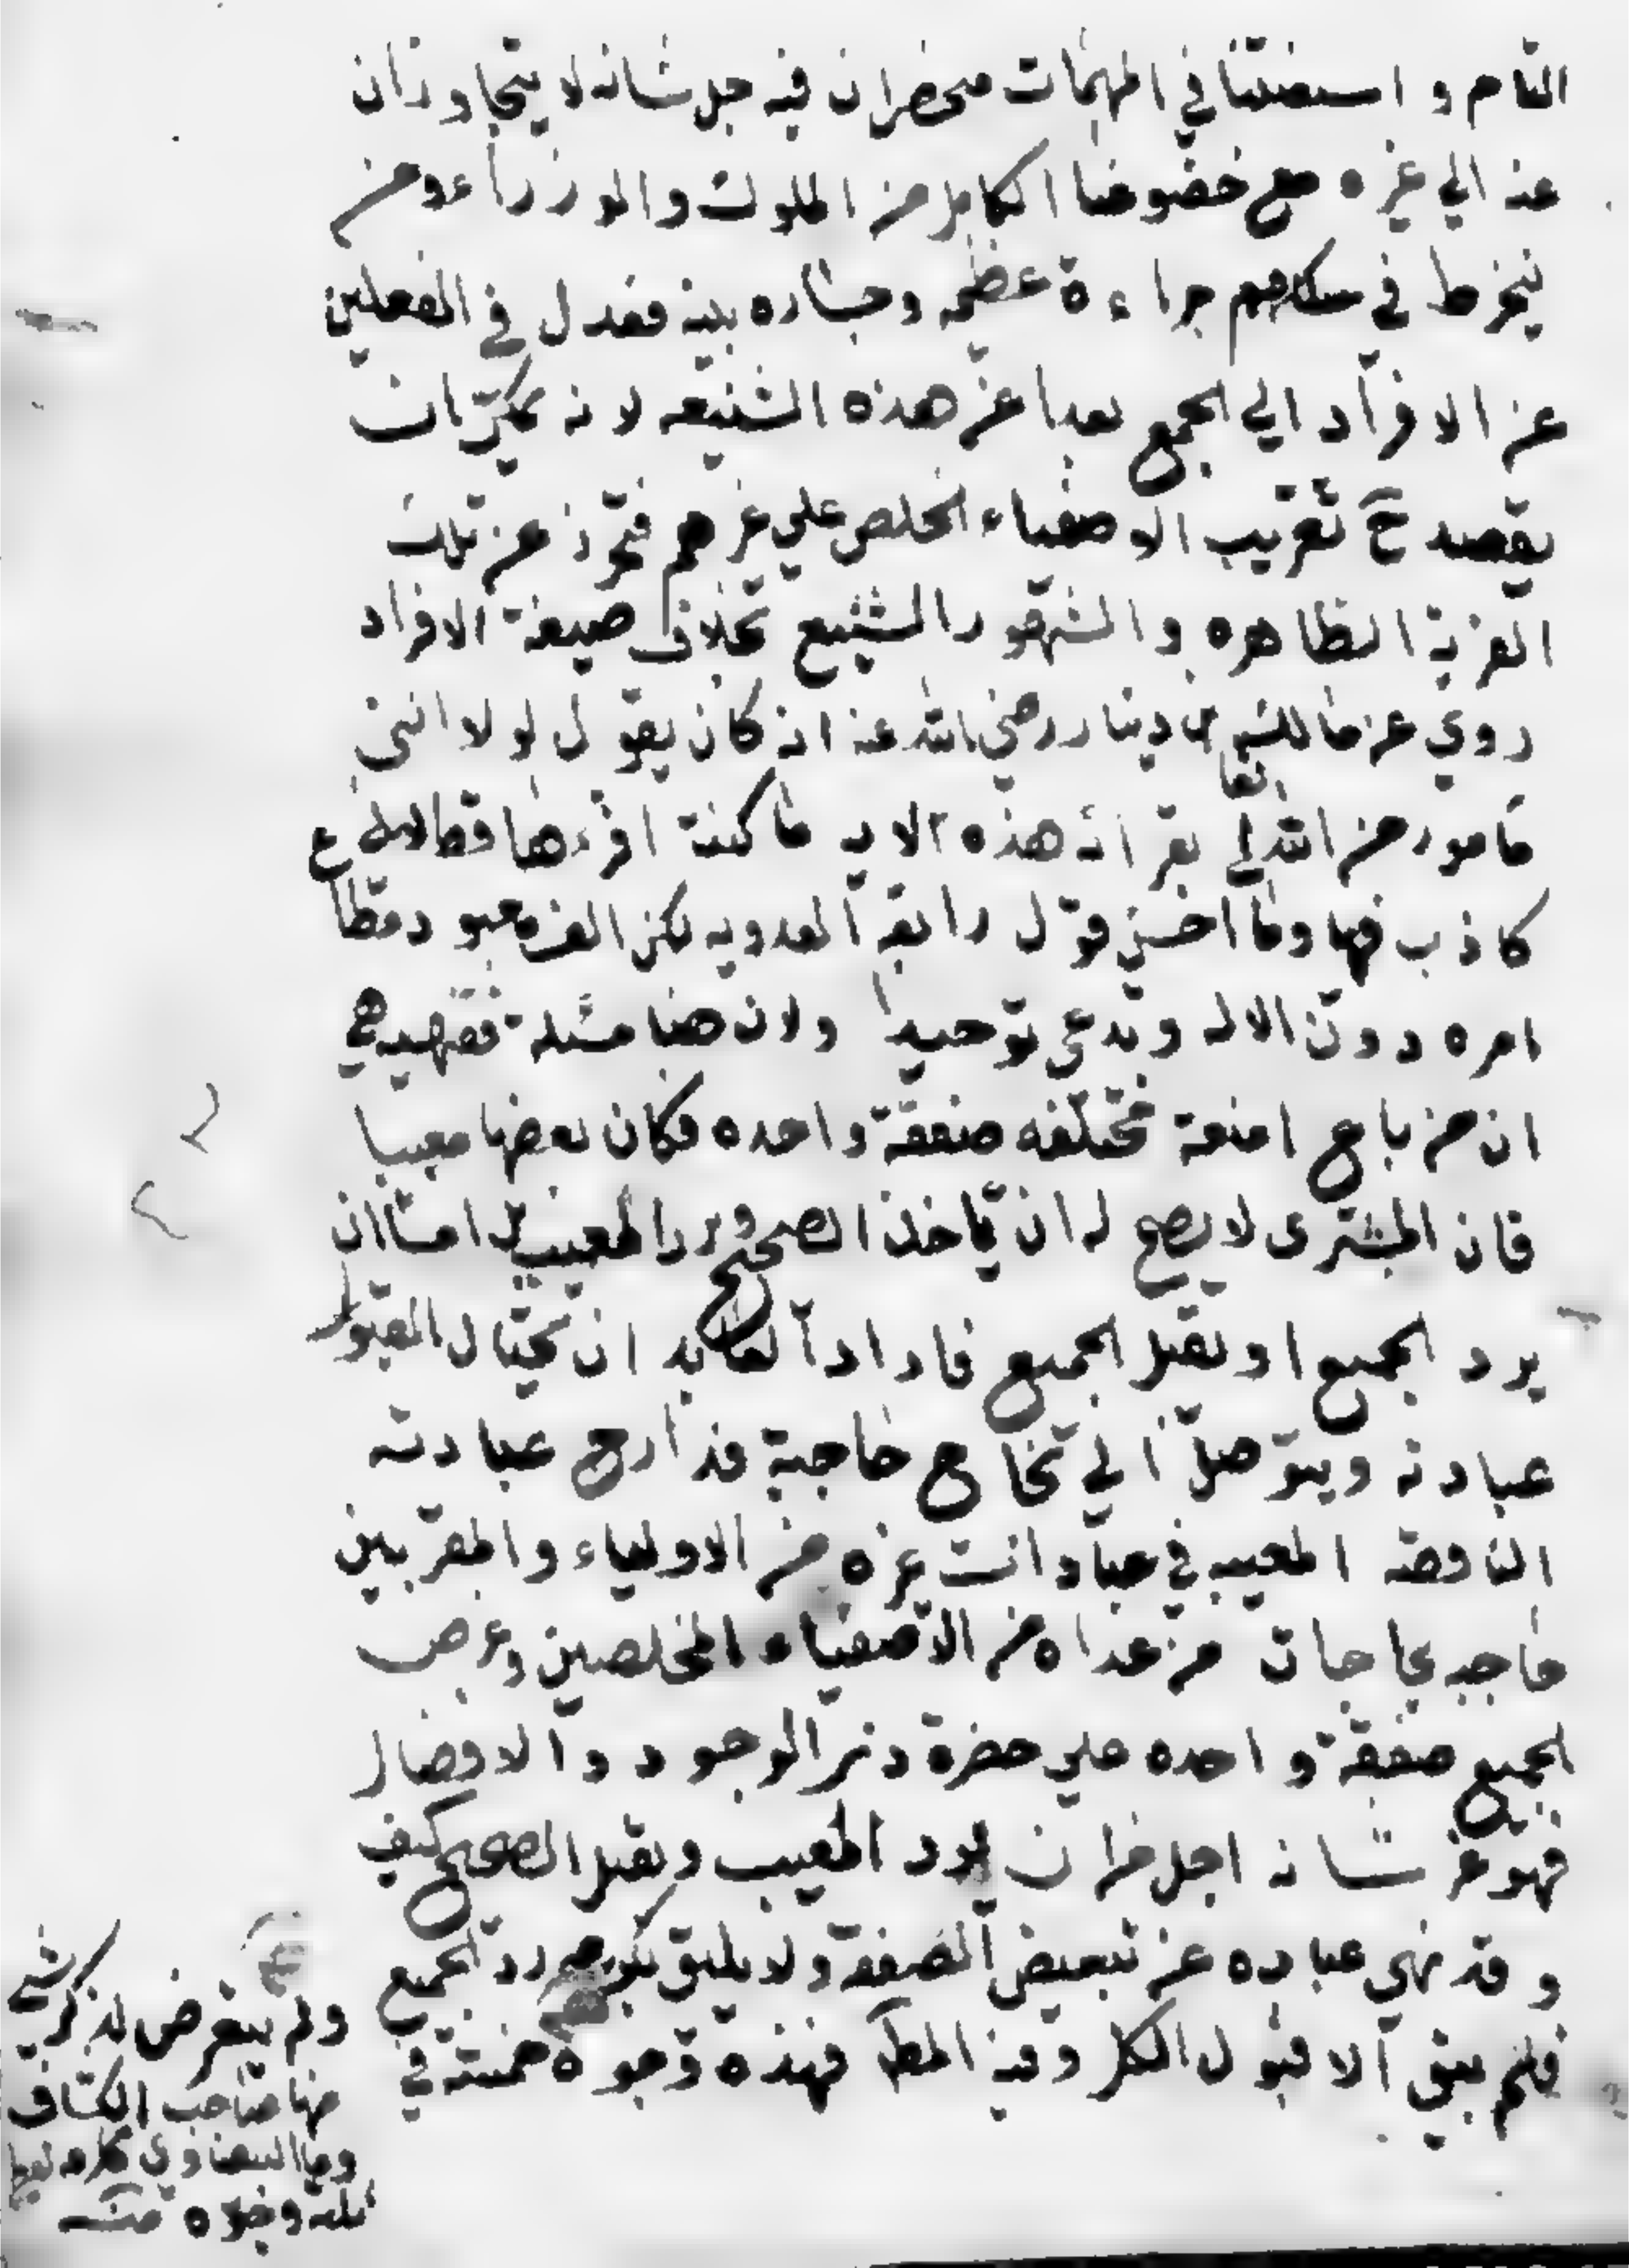 التام و استعنتنا في المهمات منحصران فيه جل شانه لا يتجاوزان
عنه الي غيره مع خضوعنا الكامل من الملوك والوزراء ومن
ينخرط في سلكهم جراءة عظيمه وجساره بينه فعدل في الفعلين
عن الافراد الي الجمع بعدا عن هذه الشنيعه لانه يمكن ان
يقصد ح تغريب الاصفياء الخلص علي غيرهم فتحرز عن تلك
الفرية الظاهره و التهور الشنيع بخلاف صيغة الافراد
روي عن مالك بن دينار رضي الله عنه انه كان يقول لولا انني
مامور من الله تعالى بقرائة هذه الايه ما كنت اقرءها قط لاني
كاذب فيها وما احسن قول رابعة العدويه لكن الف معبود مطاع
امره دون الاله وتدعي توحيدا ولان هنا مسئلة فقهيه هي
ان من باع امتعة مختلفه صفقة واحده فكان بعضها معيبا
فان المشتري لا يصح له ان ياخذ الصحيح ويرد المعيب بل اما ان
يرد الجميع او يقبل الجميع فاراد العابد ان يحتال لقبول
عبادته ويتوصل الي نجاح حاجته فدارج عبادته
الناقصه المعيبه في عبادات غيره من الاولياء والمقربين
حاجه بحاجات من عداه من الاصفياء المخلصين وعرض
الجميع صفقة واحده علي حضرة ذي الوجود والافضال
فهو عز شانه اجل من ان يرد المعيب ويقبل الصحيح كيف
وقد نهي عباده عن تبعيض الصفقة ولا يليق بكرمه رد الجميع
فلم يبق الا قبول الكل وفيه المط فهذه وجوه خمسة في
ولم يتعرض لذكر شي
منها صاحب الكشاف
واما البيضاوي
ثلثة وجوه منه